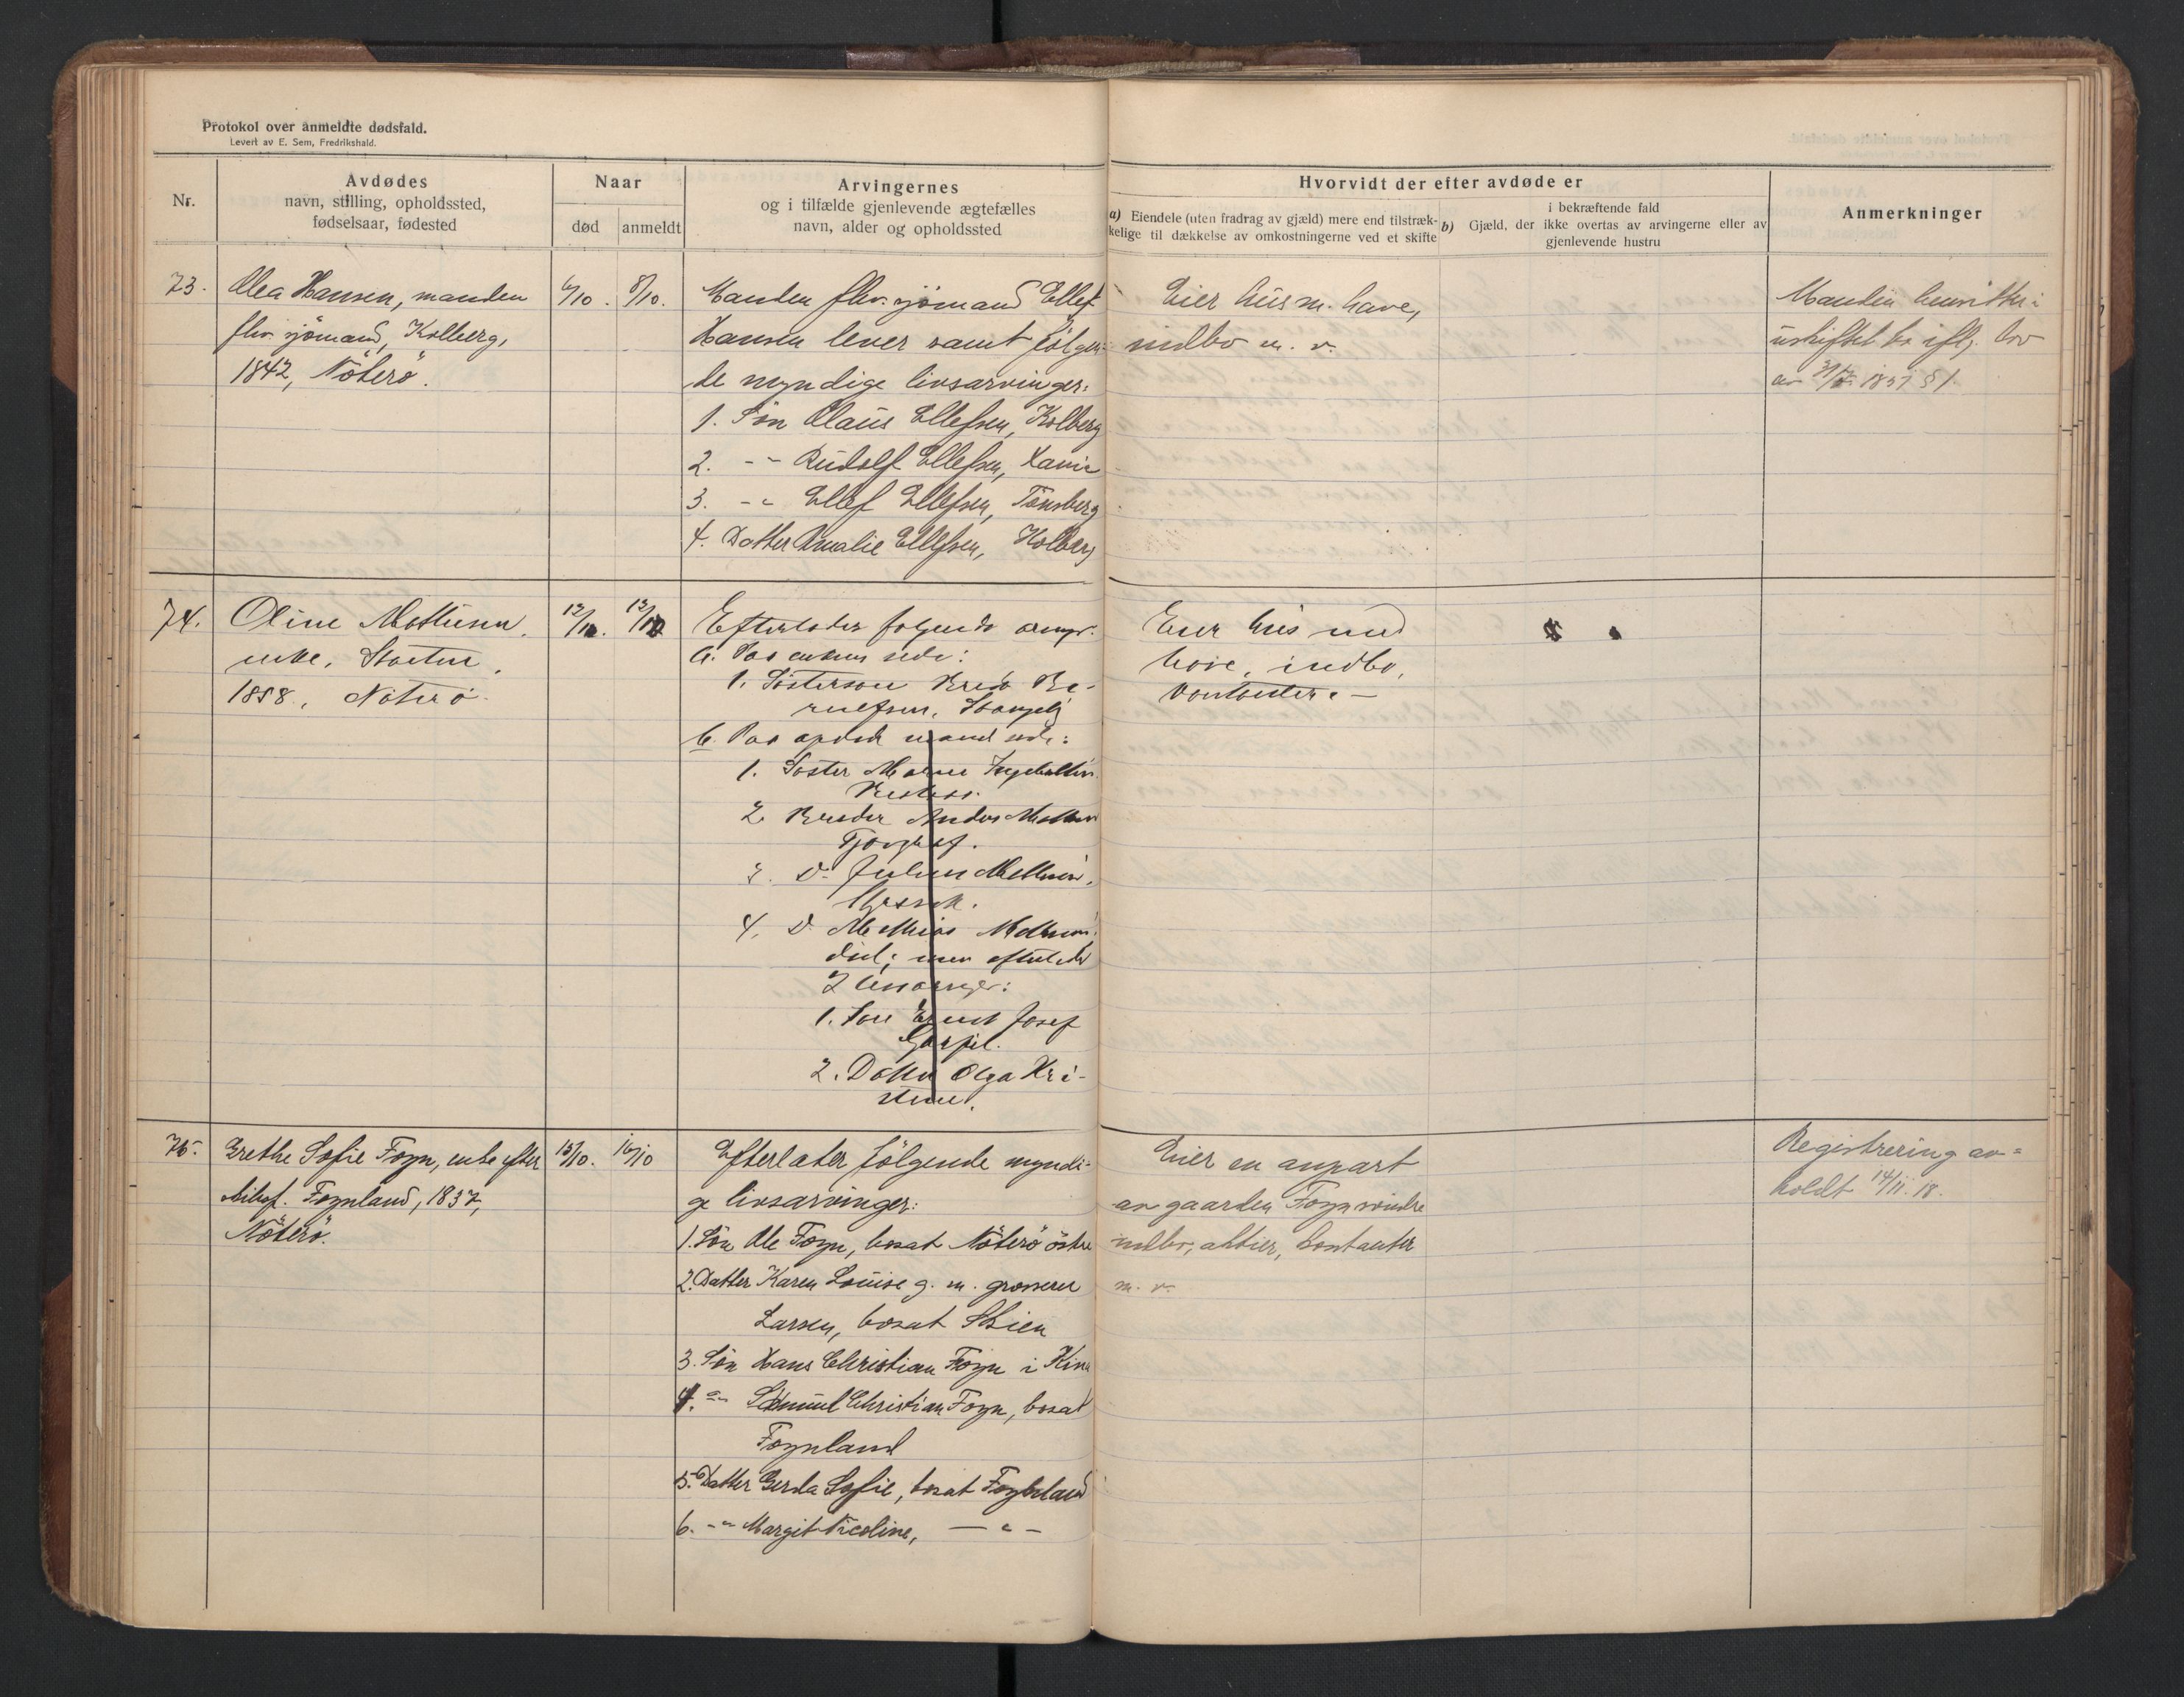 Protokol over anmeldte dødsfald.
Levert av E. Sem, Fredrikshald.
Nr.
Avdødes
navn, stilling, opholdssted,
fødselsaar, fødested
Naar
død
anmeldt
Arvingernes
og i tilfælde gjenlevende ægtefælles
navn, alder og opholdssted
Hvorvidt der efter avdøde er
a) Eiendele (uten fradrag av gjæld) mere end tilstræk-
kelige til dækkelse av omkostningerne ved et skifte
b)
i bekræftende fald
Gjæld, der ikke overtas av arvingerne eller av
gjenlevende hustru
Anmerkninger
73.
Olea Hansen, manden
fhv. sjömand, Kolberg,
1842, Nöterö.
6/10.
8/10.
Manden fhv. sjömand Ellef
Hansen lever samt følgen-
de myndige livsarvinger:
1. Sön Olaus Ellefsen, Kolberg
2. -"- Rudolf Ellefsen,
3. -"- Ellef Ellefsen, Tönsberg
4. Datter Amalie Ellefsen, Kolberg
Eier hus m. have,
indbo m. v.
Manden hensitter i
uskiftet bo ifl. lov
av 31/7 1851 § 1.
74.
Oline Mathisen,
enke,
1858, Nöterö.
12/10.
12/10
Efterlader følgende arvger.
a. Paa enkens side:
1. Søstersøn
b. Paa avdøde mands side:
1. Søster
2. Broder Anders Mathisen
3. D. Julius Mathisen,
4. D. Mathias Mathisen
død; men efterlader
2 livsarvger:
1. Søn Ernst Josef
2. Datter Olga Kri-
stine.
Eier hus med
have, indbo,
kontanter. —
75.
Grethe Sofie Foyn, enke efter
skibsf. Foynland, 1837,
Nöterö.
15/10.
16/10
Efterlater følgende myndi-
ge livsarvinger:
1. Sön Ole Foyn, bosat Nöterö östre
2. Datter Karen Louise g. m. grosserer
Larsen, bosat Skien
3. Sön Hans Christian Foyn i Kina
4. -"- Samuel Christian Foyn, bosat
Foynland
5. Datter Gerda Sofie, bosat Foynland
6. -"- Margit Nicoline, — " —
Eier en anpart
av gaarden Foyn söndre
indbo, aktier, kontanter
m. v.
Registrering av-
holdt 14/11. 18.